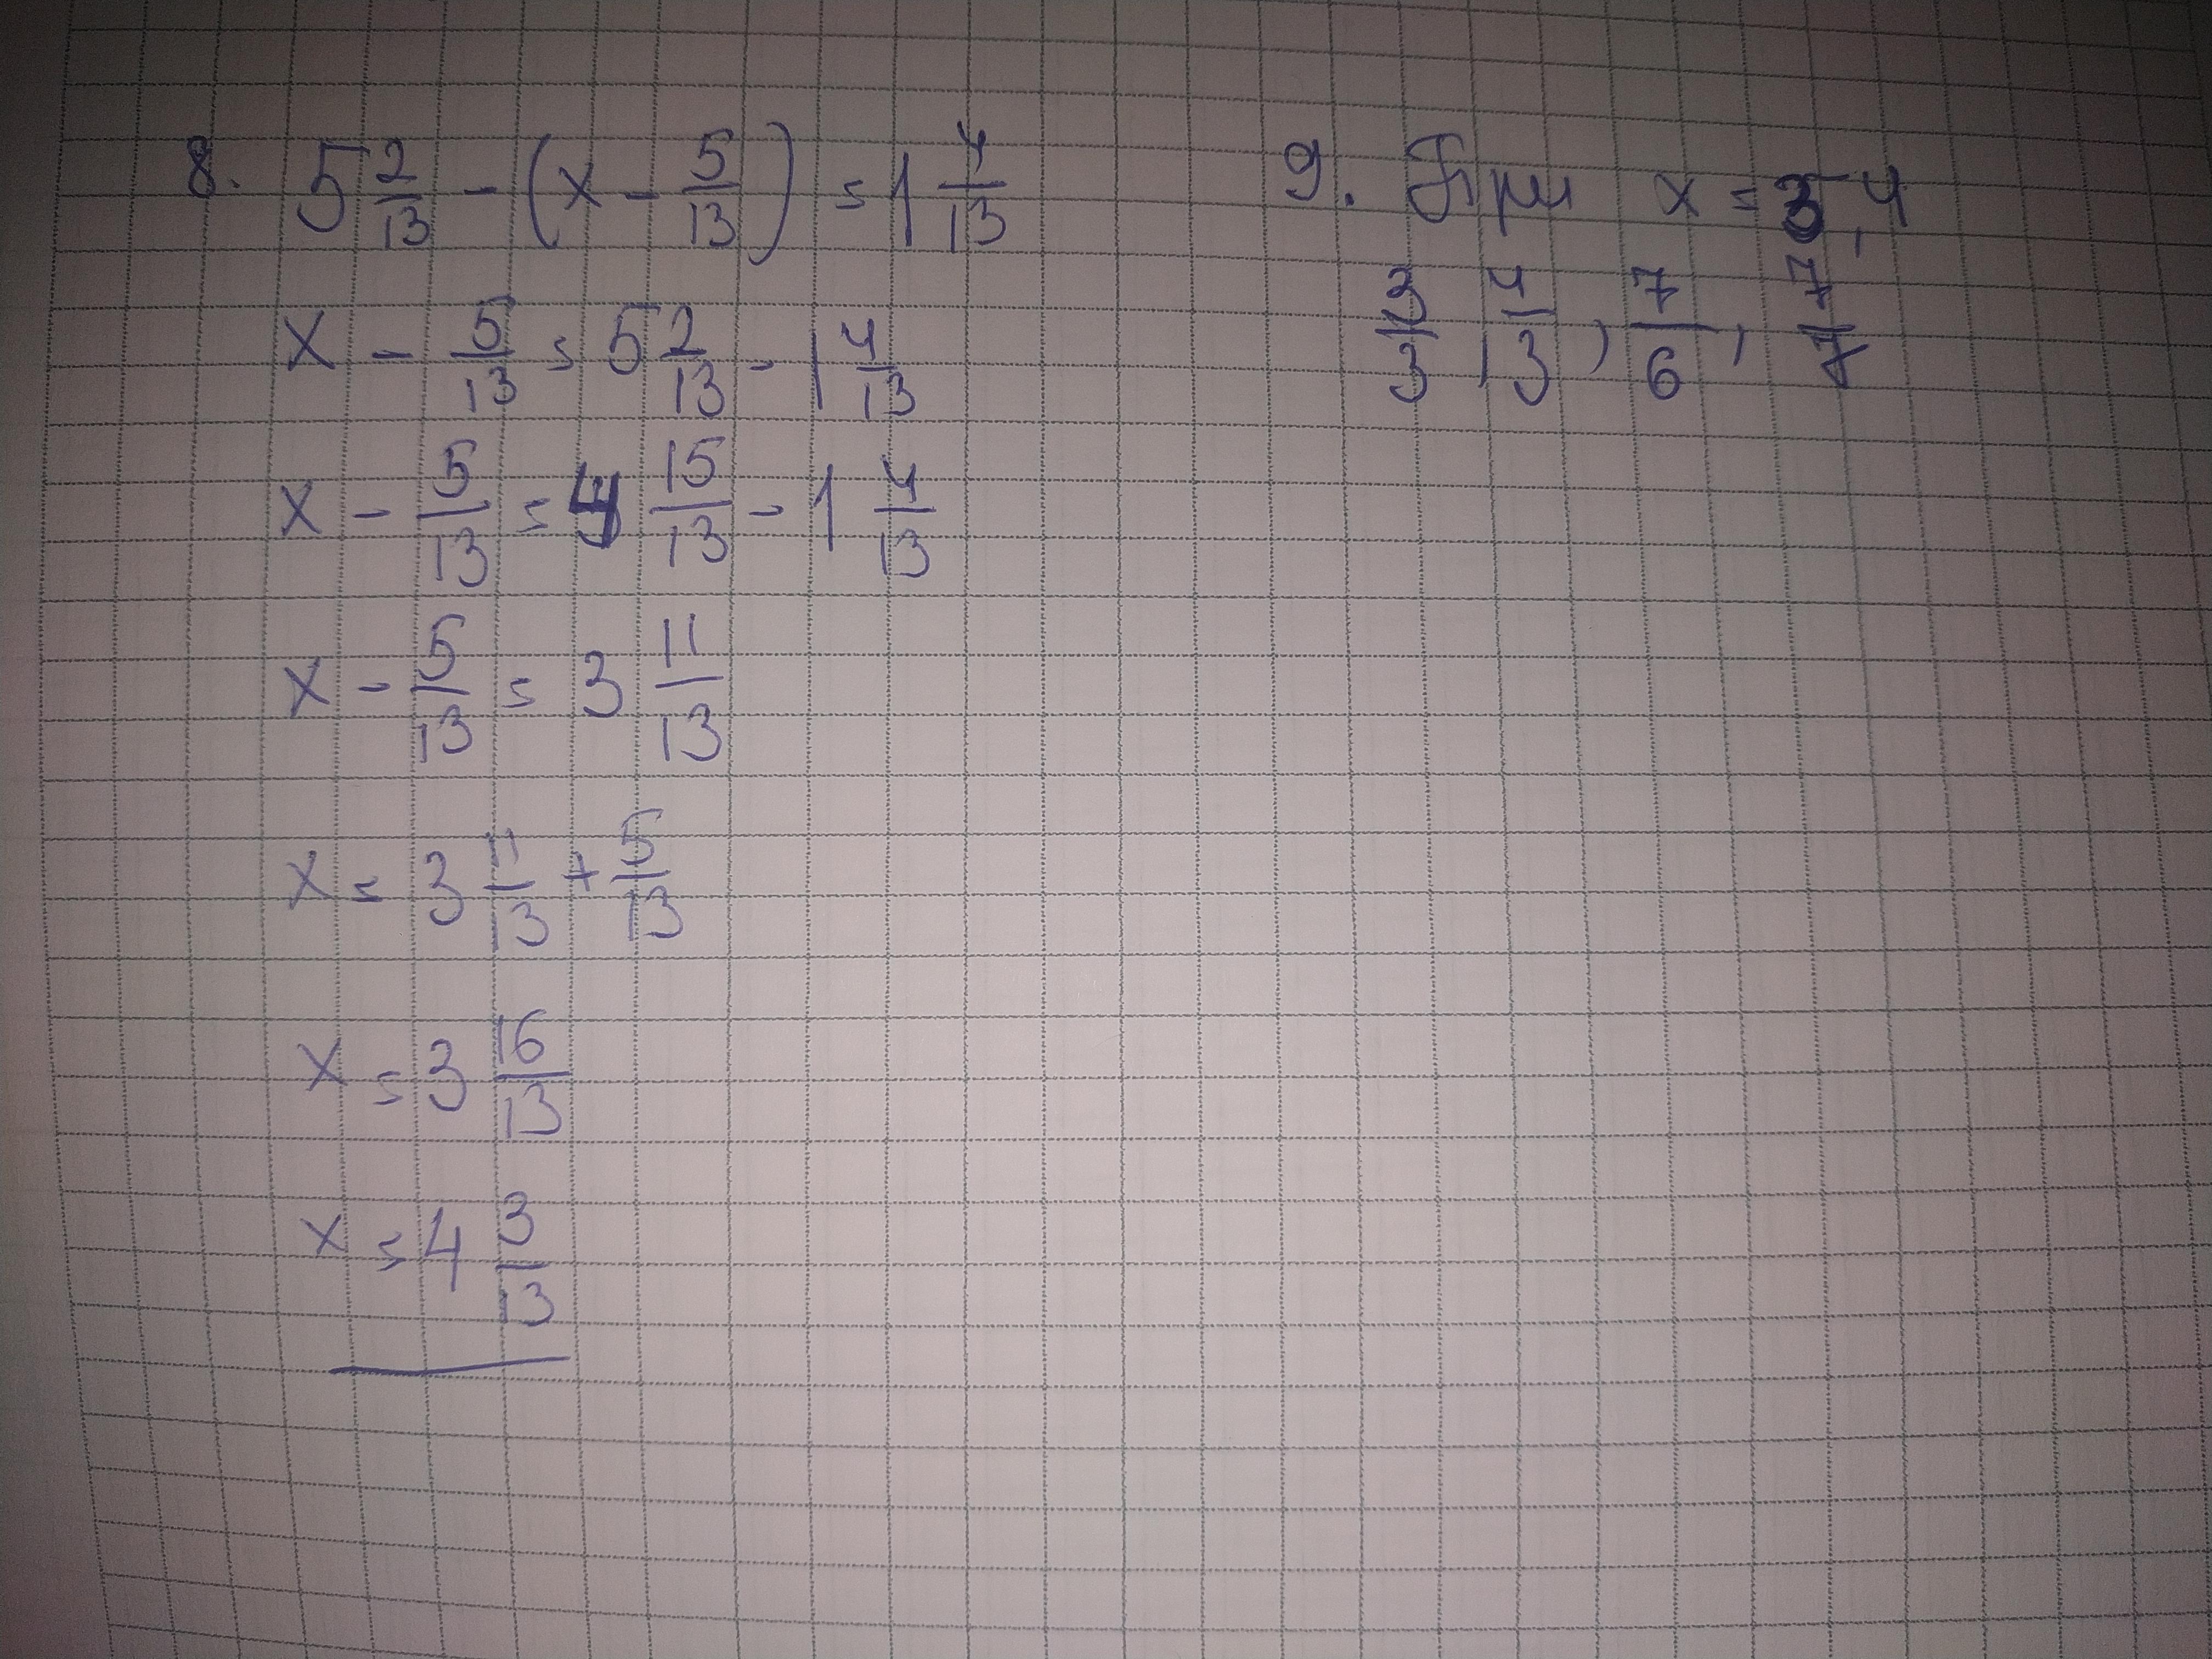 8. 5 2/13 - (x - 5/13) = 1 4/13
x - 5/13 = 5 2/13 - 1 4/13
x - 5/13 = 4 15/13 - 1 4/13
x - 5/13 = 3 11/13
x = 3 11/13 + 5/13
x = 3 16/13
x = 4 3/13
9. При x = 3, 4
3/3, 4/3, 7/6, 7/7